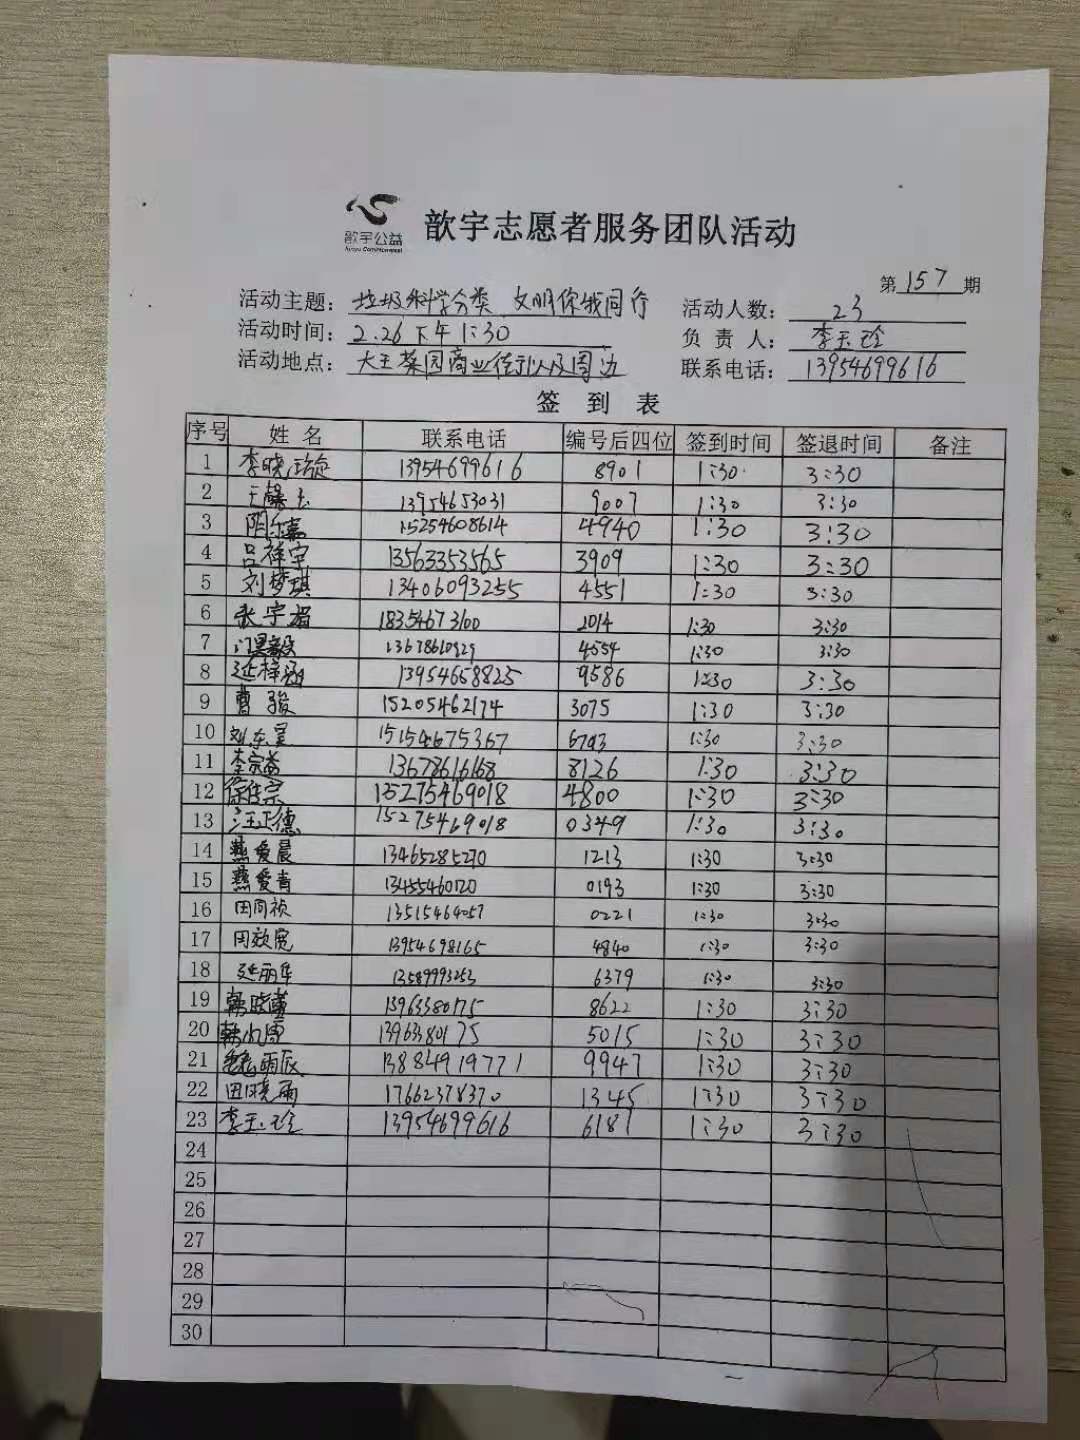 歆宇公益
歆宇志愿者服务团队活动
第 157 期
活动主题： 垃圾科学分类 文明你我同行 活动人数： 23
活动时间： 2.26下午1:30 负 责 人： 李玉玲
活动地点： 大王菜园商业街以及周边 联系电话： 13954699616
签 到 表
序号 姓 名 联系电话 编号后四位 签到时间 签退时间 备注
1 李晓 13954699616 8901 1:30 3:30
2 王馨 13954653031 9007 1:30 3:30
3 15254608614 4940 1:30 3:30
4 吕祥宇 13563353565 3909 1:30 3:30
5 刘梦琪 13406093255 4551 1:30 3:30
6 张宇 18354673100 2014 1:30 3:30
7 4554 1:30 3:30
8 延梓涵 13954658825 9586 1:30 3:30
9 曹骏 15205462174 3075 1:30 3:30
10 刘东昊 15154675367 6793 1:30 3:30
11 李宗益 13678616168 8126 1:30 3:30
12 徐佳宗 15275469018 4800 1:30 3:30
13 汪正德 15275469018 0349 1:30 3:30
14 燕爱晨 13465285270 1213 1:30 3:30
15 燕爱青 13455460120 0193 1:30 3:30
16 田同祯 13515464057 0221 1:30 3:30
17 周效宽 13954698165 4840 1:30 3:30
18 延丽华 13589993253 6379 1:30 3:30
19 韩晓 13963380175 8622 1:30 3:30
20 韩 13963380175 5015 1:30 3:30
21 13884919771 9947 1:30 3:30
22 田晓雨 17662378370 1345 1:30 3:30
23 李玉玲 13954699616 6181 1:30 3:30
24
25
26
27
28
29
30